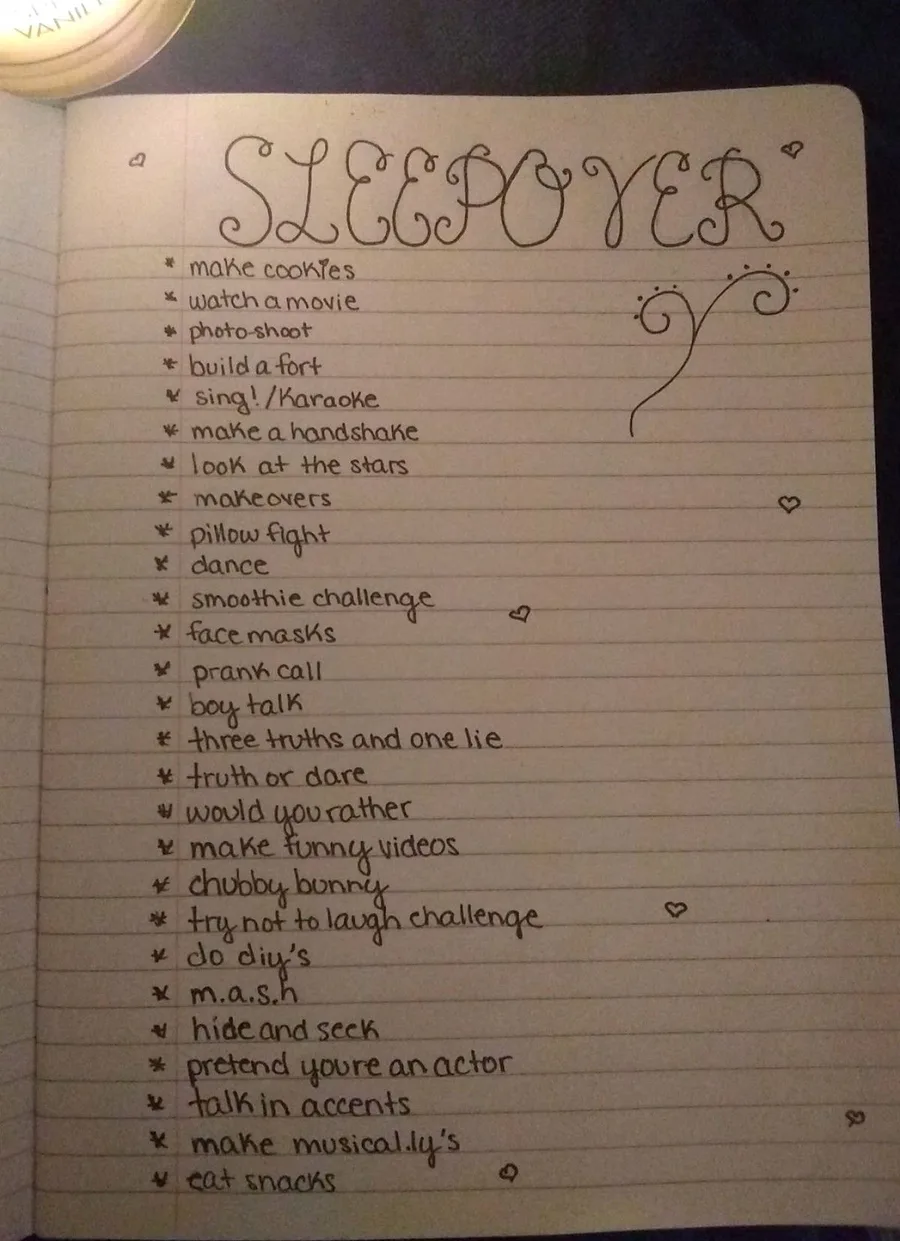 VANIL
SLEEPOVER
* make cookies
* watch a movie
* photo-shoot
* build a fort
* sing! / Karaoke
* make a handshake
* look at the stars
* makeovers
* pillow fight
* dance
* smoothie challenge
* face masks
* prank call
* boy talk
* three truths and one lie
* truth or dare
* would you rather
* make funny videos
* chubby bunny
* try not to laugh challenge
* do diy's
* m.a.s.h
* hide and seek
* pretend youre an actor
* talk in accents
* make musical.ly's
* eat snacks